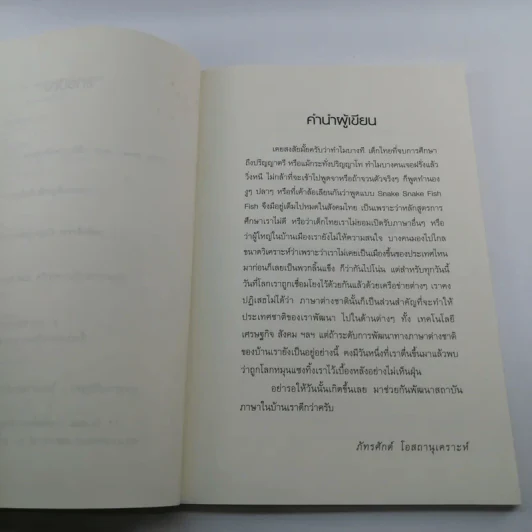 คำนำผู้เขียน
เคยสงสัยมั้ยครับว่าทำไมบางที เด็กไทยที่จบการศึกษา
ถึงปริญญาตรี หรือแม้กระทั่งปริญญาโท ทำไมบางคนเจอฝรั่งแล้ว
วิ่งหนี ไม่กล้าที่จะเข้าไปพูดจาหรือถ้าจวนตัวจริงๆ ก็พูดทำนอง
งูๆ ปลาๆ หรือที่เค้าล้อเลียนกันว่าพูดแบบ Snake Snake Fish
Fish จึงมีอยู่เต็มไปหมดในสังคมไทย เป็นเพราะว่าหลักสูตรการ
ศึกษาเราไม่ดี หรือว่าเด็กไทยเราไม่ยอมเปิดรับภาษาอื่นๆ หรือ
ว่าผู้ใหญ่ในบ้านเมืองเรายังไม่ให้ความสนใจ บางคนมองไปไกล
ขนาดวิเคราะห์ว่าเพราะว่าเราไม่เคยเป็นเมืองขึ้นของประเทศไหน
มาก่อนก็เลยเป็นพวกลิ้นแข็ง ก็ว่ากันไปโน่น แต่สำหรับทุกวันนี้
วันที่โลกเราถูกเชื่อมโยงไว้ด้วยกันแล้วด้วยเครือข่ายต่างๆ เราคง
ปฏิเสธไม่ได้ว่า ภาษาต่างชาตินั้นก็เป็นส่วนสำคัญที่จะทำให้
ประเทศชาติของเราพัฒนา ไปในด้านต่างๆ ทั้ง เทคโนโลยี
เศรษฐกิจ สังคม ฯลฯ แต่ถ้าระดับการพัฒนาทางภาษาต่างชาติ
ของบ้านเรายังเป็นอยู่อย่างนี้ คงมีวันหนึ่งที่เราตื่นขึ้นมาแล้วพบ
ว่าถูกโลกหมุนแซงทิ้งเราไว้เบื้องหลังอย่างไม่เห็นฝุ่น
อย่ารอให้วันนั้นเกิดขึ้นเลย มาช่วยกันพัฒนาสถาบัน
ภาษาในบ้านเราดีกว่าครับ
ภัทรศักดิ์ โอสถานุเคราะห์